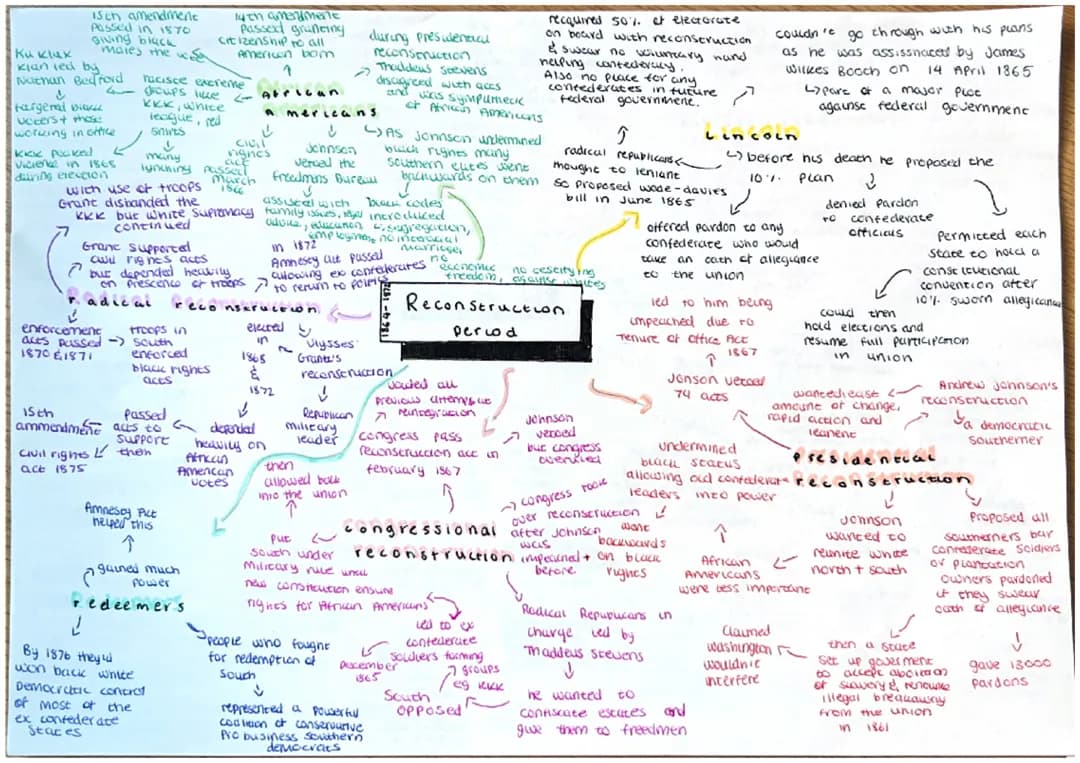 Reconstruction
period
1865-1877
African
Americans
15th amendment
passed in 1870
giving black
males the vote
14th amendment
passed granting
citizenship to all
American born
during presidential
reconstruction
Thaddeus Stevens
disagreed with acts
and was sympathetic
of African Americans
As Johnson undermined
black rights many
Southern elites went
backwards on them
Ku Klux
Klan led by
Nathan Bedford
racist extreme
groups like
KKK, white
league, red
shirts
targeted black
voters + those
working in office
KKK peaked
violence in 1868
during election
many
lynching
civil
rights
act
passed
march
1866
Johnson
vetoed the
Freedmens Bureau
assisted with
family issues, legal
advice, education
employment
black codes
introduced
segregation,
no interracial
marriage,
no
economic
freedom,
no testifying
against whites
Lincoln
before his death he proposed the
10% plan
required 50% of electorate
on board with reconstruction
& swear no voluntary hand
helping confederacy.
Also no place for any
confederates in future
federal government.
radical republicans
thought to leniant
so proposed wade-davies
bill in June 1865
couldn't go through with his plans
as he was assissnaced by James
Wilkes Booth on 14 April 1865
part of a major plot
against federal government
offered pardon to any
confederate who would
take an oath of allegiance
to the union
denied pardon
to confederate
officials
Permitted each
state to hold a
constitutional
convention after
10% sworn allegiance
could then
hold elections and
resume full participation
in union
Radical reconstruction
with use of troops
Grant disbanded the
KKK but white supremacy
continued
Grant supported
civil rights acts
but depended heavily
on presence of troops
in 1872
Amnesty act passed
allowing ex confederates
to return to politics
enforcement
acts passed
1870 & 1871
troops in
south
enforced
black rights
acts
elected
in
1868
&
1872
Ulysses
Grant's
reconstruction
Republican
military
leader
depended
heavily on
African
American
votes
Passed
acts to
support
them
15th
ammendment
civil rights
act 1875
Presidential
reconstruction
Andrew Johnson's
reconstruction
a democratic
southerner
wanted least
amount of change,
rapid action and
leanient
Jonson vetoed
74 acts
led to him being
impeached due to
Tenure of Office Act
1867
undermined
black status
allowing old confederate
leaders into power
Johnson
wanted to
reunite white
north + south
African
Americans
were less important
Proposed all
southerners bar
confederate soldiers
or plantation
owners pardoned
if they swear
oath of allegiance
gave 13000
pardons
then a state
set up goverment
to accept abolition
of slavery & renounce
illegal breakaway
from the union
in 1861
Claimed
Washington
wouldn't
interfere
Congressional
reconstruction
congress pass
reconstruction act in
february 1867
voided all
previous attempts at
reintegration
Johnson
vetoed
but congress
overruled
congress took
over reconstruction
after Johnson
was
impeached +
before
went
backwards
on black
rights
Put
South under
Military rule until
new constitution ensure
rights for African Americans
then
allowed back
into the union
led to ex
confederate
soldiers forming
groups
eg KKK
December
1865
South
opposed
Radical Republicans in
charge led by
Thaddeus Stevens
he wanted to
confiscate estates and
give them to freedmen
redeemers
gained much
power
Amnesty Act
helped this
By 1876 they'd
won back white
Democratic control
of most of the
ex confederate
states
people who fought
for redemption of
south
represented a powerful
coalition of conservative
Pro business southern
democrats